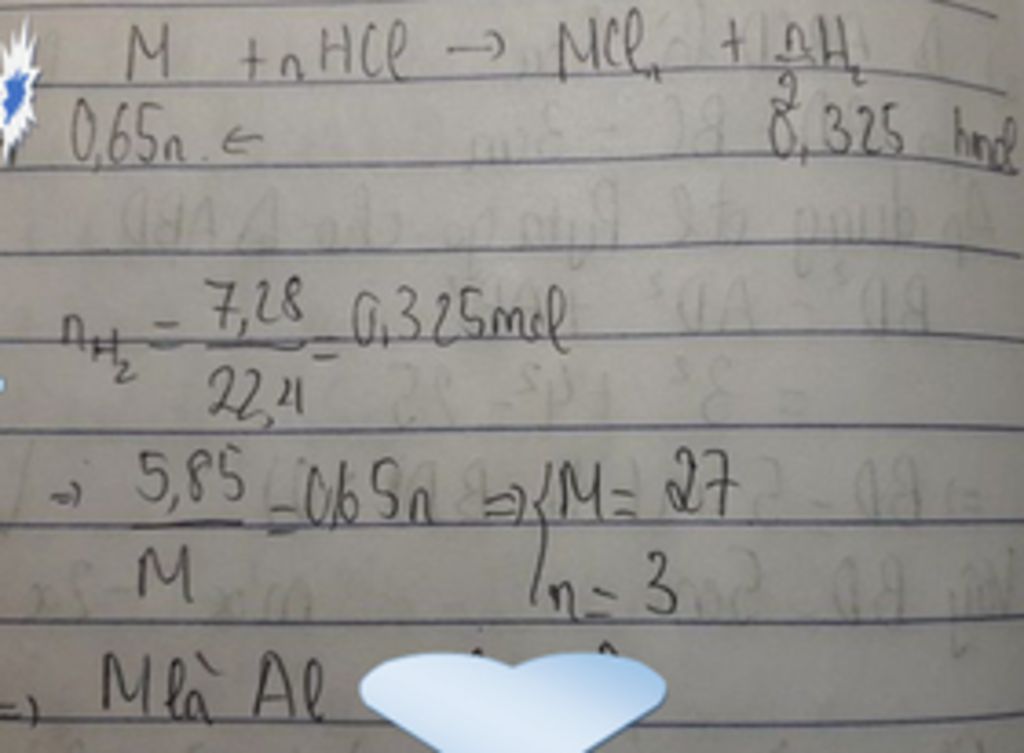 M + nHCl → MClₙ + n/2 H₂
0,65n ← 0,325 hmol
nH₂ = 7,28/22,4 = 0,325mol
=> 5,85/M = 0,65n => { M = 27
n = 3
=> M là Al